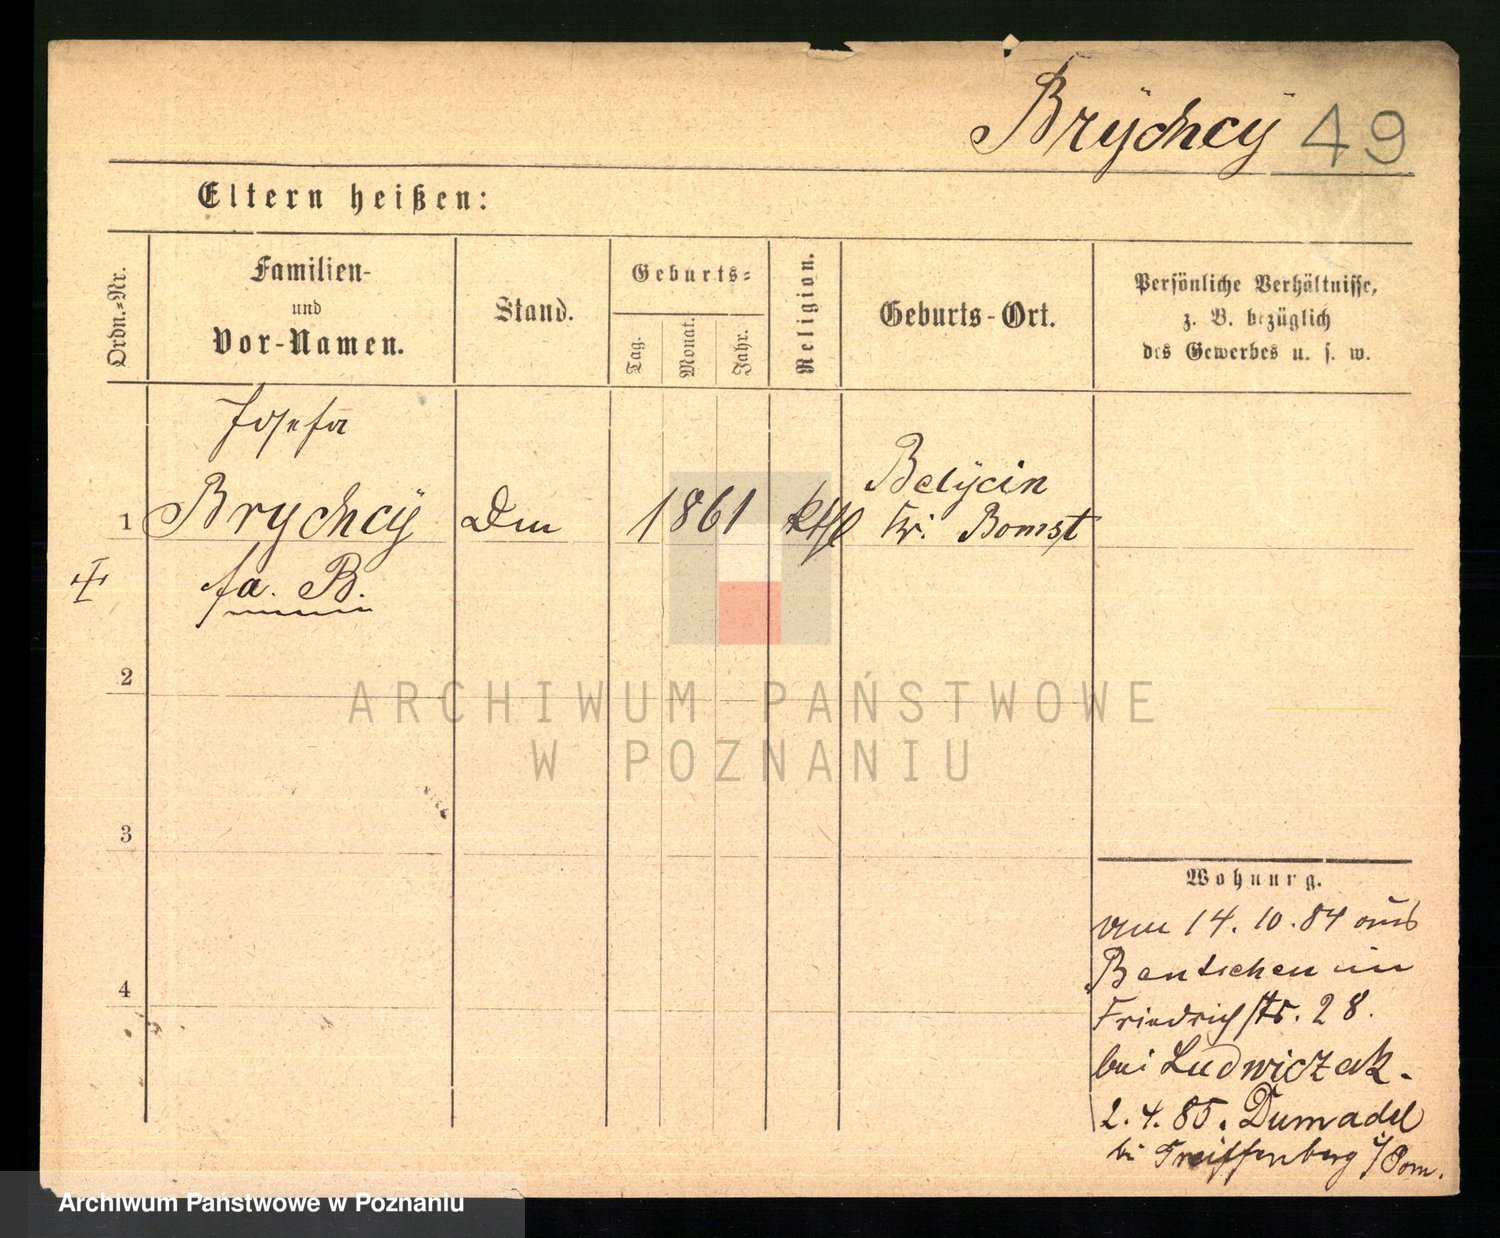 Brÿchcÿ 49
Eltern heißen:
Ordn.-Nr.
Familien-
und
Vor-Namen.
Stand.
Geburts-
Tag.
Monat.
Jahr.
Religion.
Geburts-Ort.
Persönliche Verhältnisse,
z. B. bezüglich
des Gewerbes u. s. w.
Josefa
1 Brychcÿ
1861
kthl
Belÿcin
Kr. Bomst
fa. B.
2
3
4
Wohnung.
vom 14.10.84 aus
Bentschen in
Friedrichstr. 28.
bei Ludwiczak.
2.4.85. Dumadel
bei Greiffenberg i/Pom.
ARCHIWUM PAŃSTWOWE
W POZNANIU
Archiwum Państwowe w Poznaniu